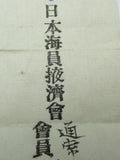 日本海員掖濟會
通常
會員